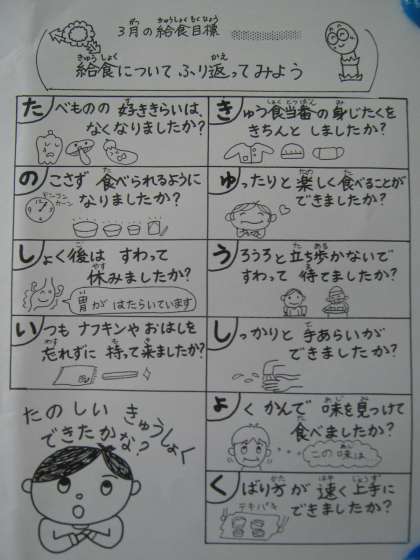 3月の給食目標
給食について ふり返ってみよう
たべものの 好ききらいは、
なくなりましたか?
のこさず 食べられるように
なりましたか?
しょく後は すわって
休みましたか?
胃が はたらいています
いつも ナフキンや おはしを
忘れずに 持って来ましたか?
たのしい きゅうしょく
できたかな?
きゅう食当番の身じたくを
きちんと しましたか?
ゆったりと 楽しく食べることが
できましたか?
うろうろと立ち歩かないで
すわって 待てましたか?
しっかりと 手あらいが
できましたか?
よくかんで 味を見つけて
食べましたか?
この味は
くばり方が 速く上手に
できましたか?
テキパキ